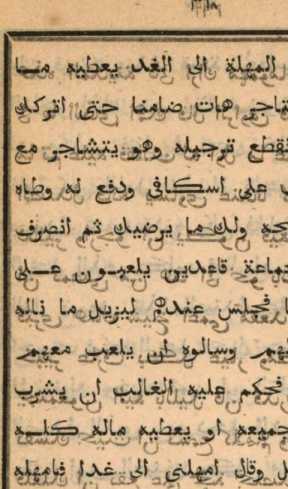 المهلة الى الغد يعطيه مـــا
هات ضامنا حتى اتركك
ترجيله وهو يتشاجر مع
على اسكافى ودفع له وطاه
ولك ما يرضيك ثم انصرف
قاعدين يلعبــون عـــلى
فجلس عندهم ليزيل ما ناله
وسالوه ان يلعب معهم
فحكم عليه الغالب ان يشرب
جميعه او يعطيه ماله كلـــه
وقال امهلنى الى غدا فامهله